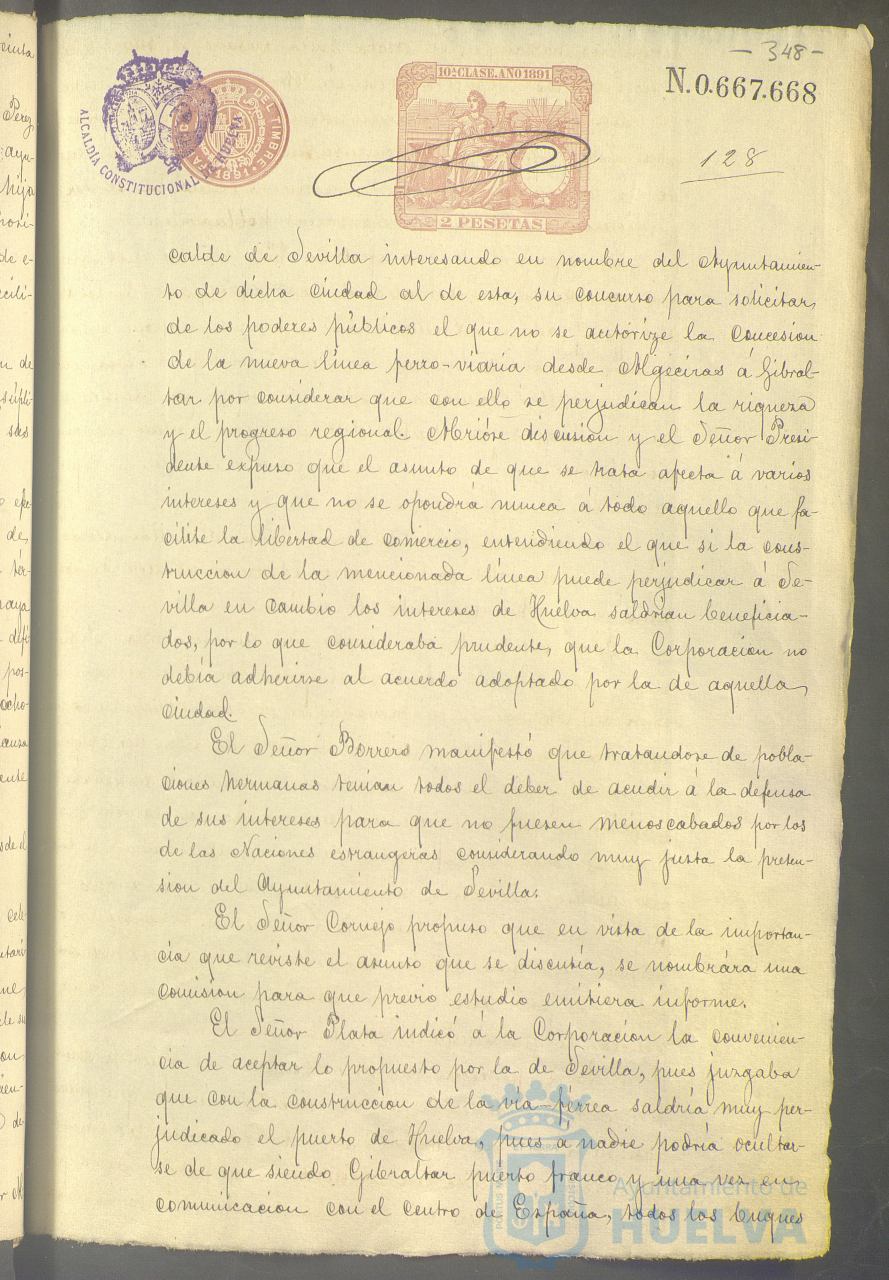 - 348 -
N. 0.667.668
128
10ª CLASE. AÑO 1891
2 PESETAS
ALCALDÍA CONSTITUCIONAL DE HUELVA
DEL TIMBRE
1891
calde de Sevilla interesando en nombre del Ayuntamien-
to de dicha ciudad al de esta, su concurso para solicitar
de los poderes públicos el que no se autorize la concesion
de la nueva línea ferro-viaria desde Algeciras á Gibral-
tar por considerar que con ello se perjudican la riqueza
y el progreso regional. Abrióse discusion y el Señor Presi-
dente expuso que el asunto de que se trata afecta á varios
intereses y que no se opondrá nunca á todo aquello que fa-
cilite la libertad de comercio, entendiendo el que si la cons-
truccion de la mencionada línea puede perjudicar á Se-
villa en cambio los intereses de Huelva saldrian beneficia-
dos, por lo que consideraba prudente, que la Corporacion no
debía adherirse al acuerdo adoptado por la de aquella
ciudad.
El Señor Borrero manifestó que tratandose de pobla-
ciones hermanas tenian todos el deber de acudir á la defensa
de sus intereses para que no fuesen menoscabados por los
de las Naciones estrangeras considerando muy justa la preten-
sion del Ayuntamiento de Sevilla.
El Señor Cornejo propuso que en vista de la importan-
cia que reviste el asunto que se discutia, se nombrára una
comision para que previo estudio emitiera informe.
El Señor Plata indicó á la Corporacion la convenien-
cia de aceptar lo propuesto por la de Sevilla, pues juzgaba
que con la construccion de la via-férrea saldría muy per-
judicado el puerto de Huelva, pues á nadie podría ocultar-
se de que siendo Gibraltar puerto franco y una vez en
comunicacion con el centro de España, todos los buques
Ayuntamiento de
HUELVA